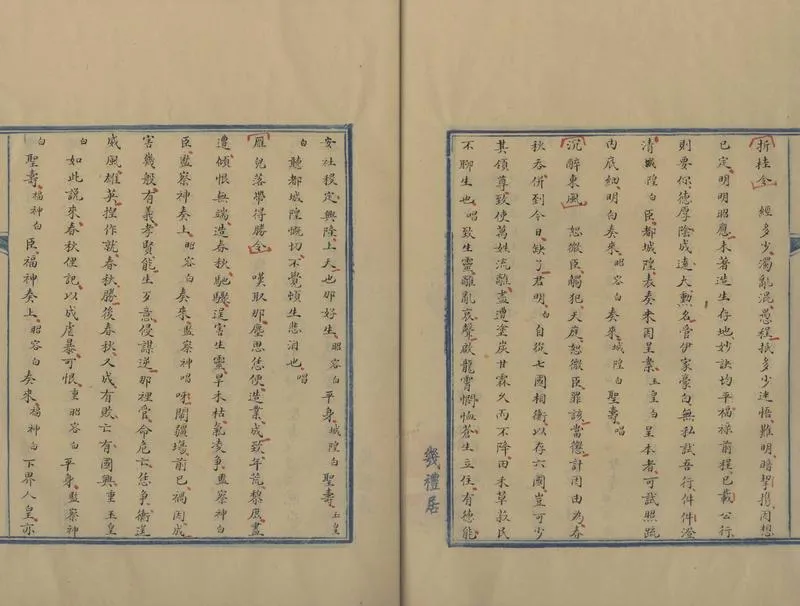 折桂令 經多少濁亂混愚程抵多少迷悟難明暗挈携周想
已定明明昭應未著造生存地妙訣均平福祿前程已載公行
則要伱德厚陰成遠大勲名管伊家豪白無私試吾行件件澄
清城隍白臣都城隍表奏因呈業玉皇白呈本者可試照䟽
内底細明白奏來昭容白奏來城隍白聖壽唱
沉醉東風 恕微臣觸犯天庭恕微臣罪該當懲計因由為春
秋吞併到今日缺了君明白自從七國相衡以存六國豈可少
其領尊致使萬姓流離盡遭塗炭甘霖久而不降田禾草救民
不聊生也唱致生靈離亂哀聲啟龍霄憫恤蒼生立住有德能
幾禮居
安社稷定興陸上天也那好生昭容白平身城隍白聖壽玉皇
白聽都城隍慨切不覺頓生悲泪也唱
雁兒落帶得勝令 嘆取那塵思恁便造業成致年荒黎庶盡
遭傾恨無端造春秋馳驟逞害生靈旱未枯氣凌爭監察神白
臣監察神奏上昭容白奏來監察神唱呀閙疆場前已禍因成
害幾般有義孝賢能生歹意侵謀逆那裡管命危亡恁爭衡逞
威風雄英捏作就春秋勝後春秋又成有敗亡有國興重玉皇
白如此説來春秋俚記以成虐暴可恨重昭容白平身監察神
白聖壽福神白臣福神奏上昭容白奏來福神白下界人皇亦